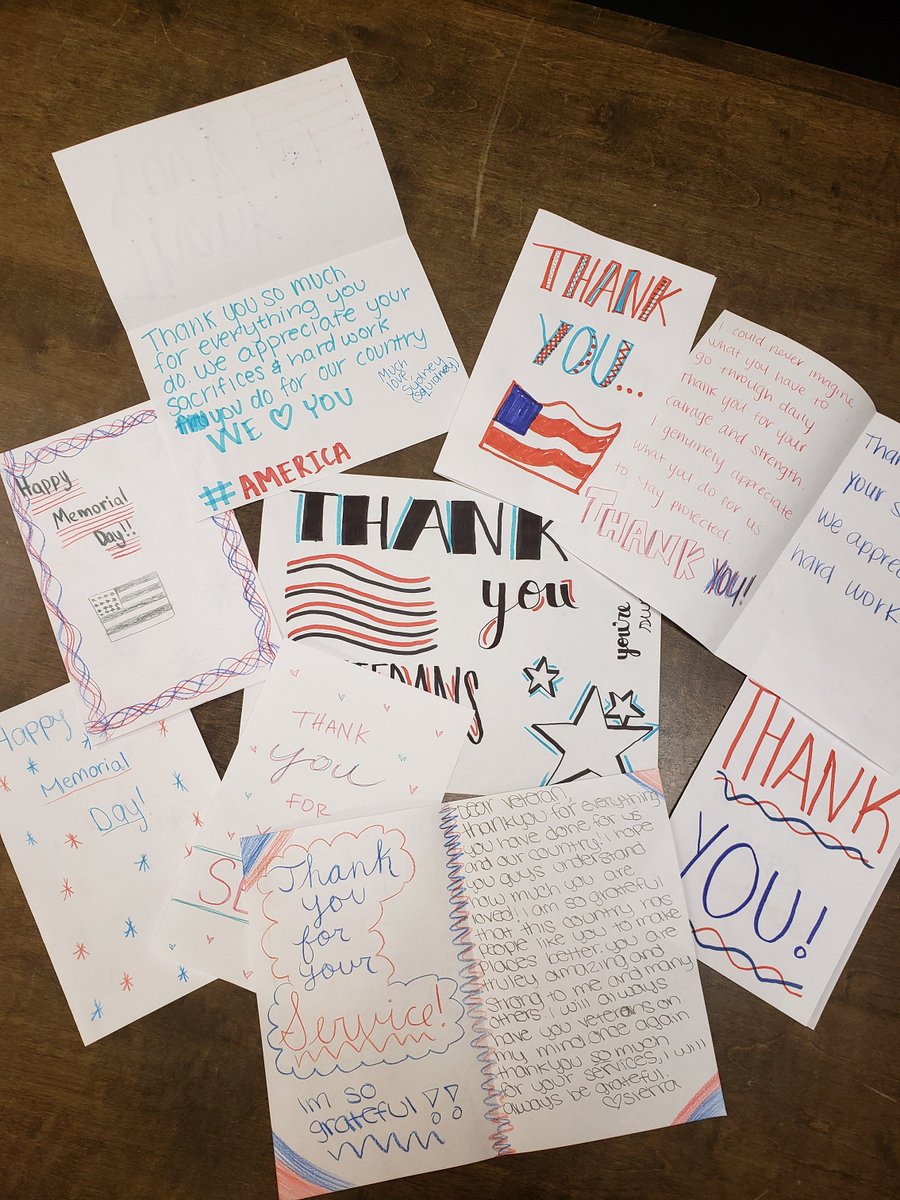 Thank you so much
for everything you
do. We appreciate your
sacrifices & hard work
you do for our country
WE ♡ YOU
#AMERICA
Much
love
Sydney
(Squidney)
THANK
YOU...
I could never imagine
what you have to
go through daily
Thank you for your
courage and strength.
I genuinely appreciate
what you do for us
to stay protected.
THANK YOU!
your
We
hard work
Happy
Memorial
Day!!
THANK
you
you're
Happy
Memorial
Day!
THANK
you
FOR
THANK
YOU!
Thank
you
for
your
Service!
Im so
grateful!!
Dear Veteran
thankyou for everything
you have done for us
and our country! I hope
you guys understand
how much you are
loved! I am so grateful
that this country has
people like you to make
places better. you are
truley amazing and
strong to me and many
others. I will always
have you veterans on
my mind. once again
thankyou so much
for your services, I will
always be grateful.
♡Sierra